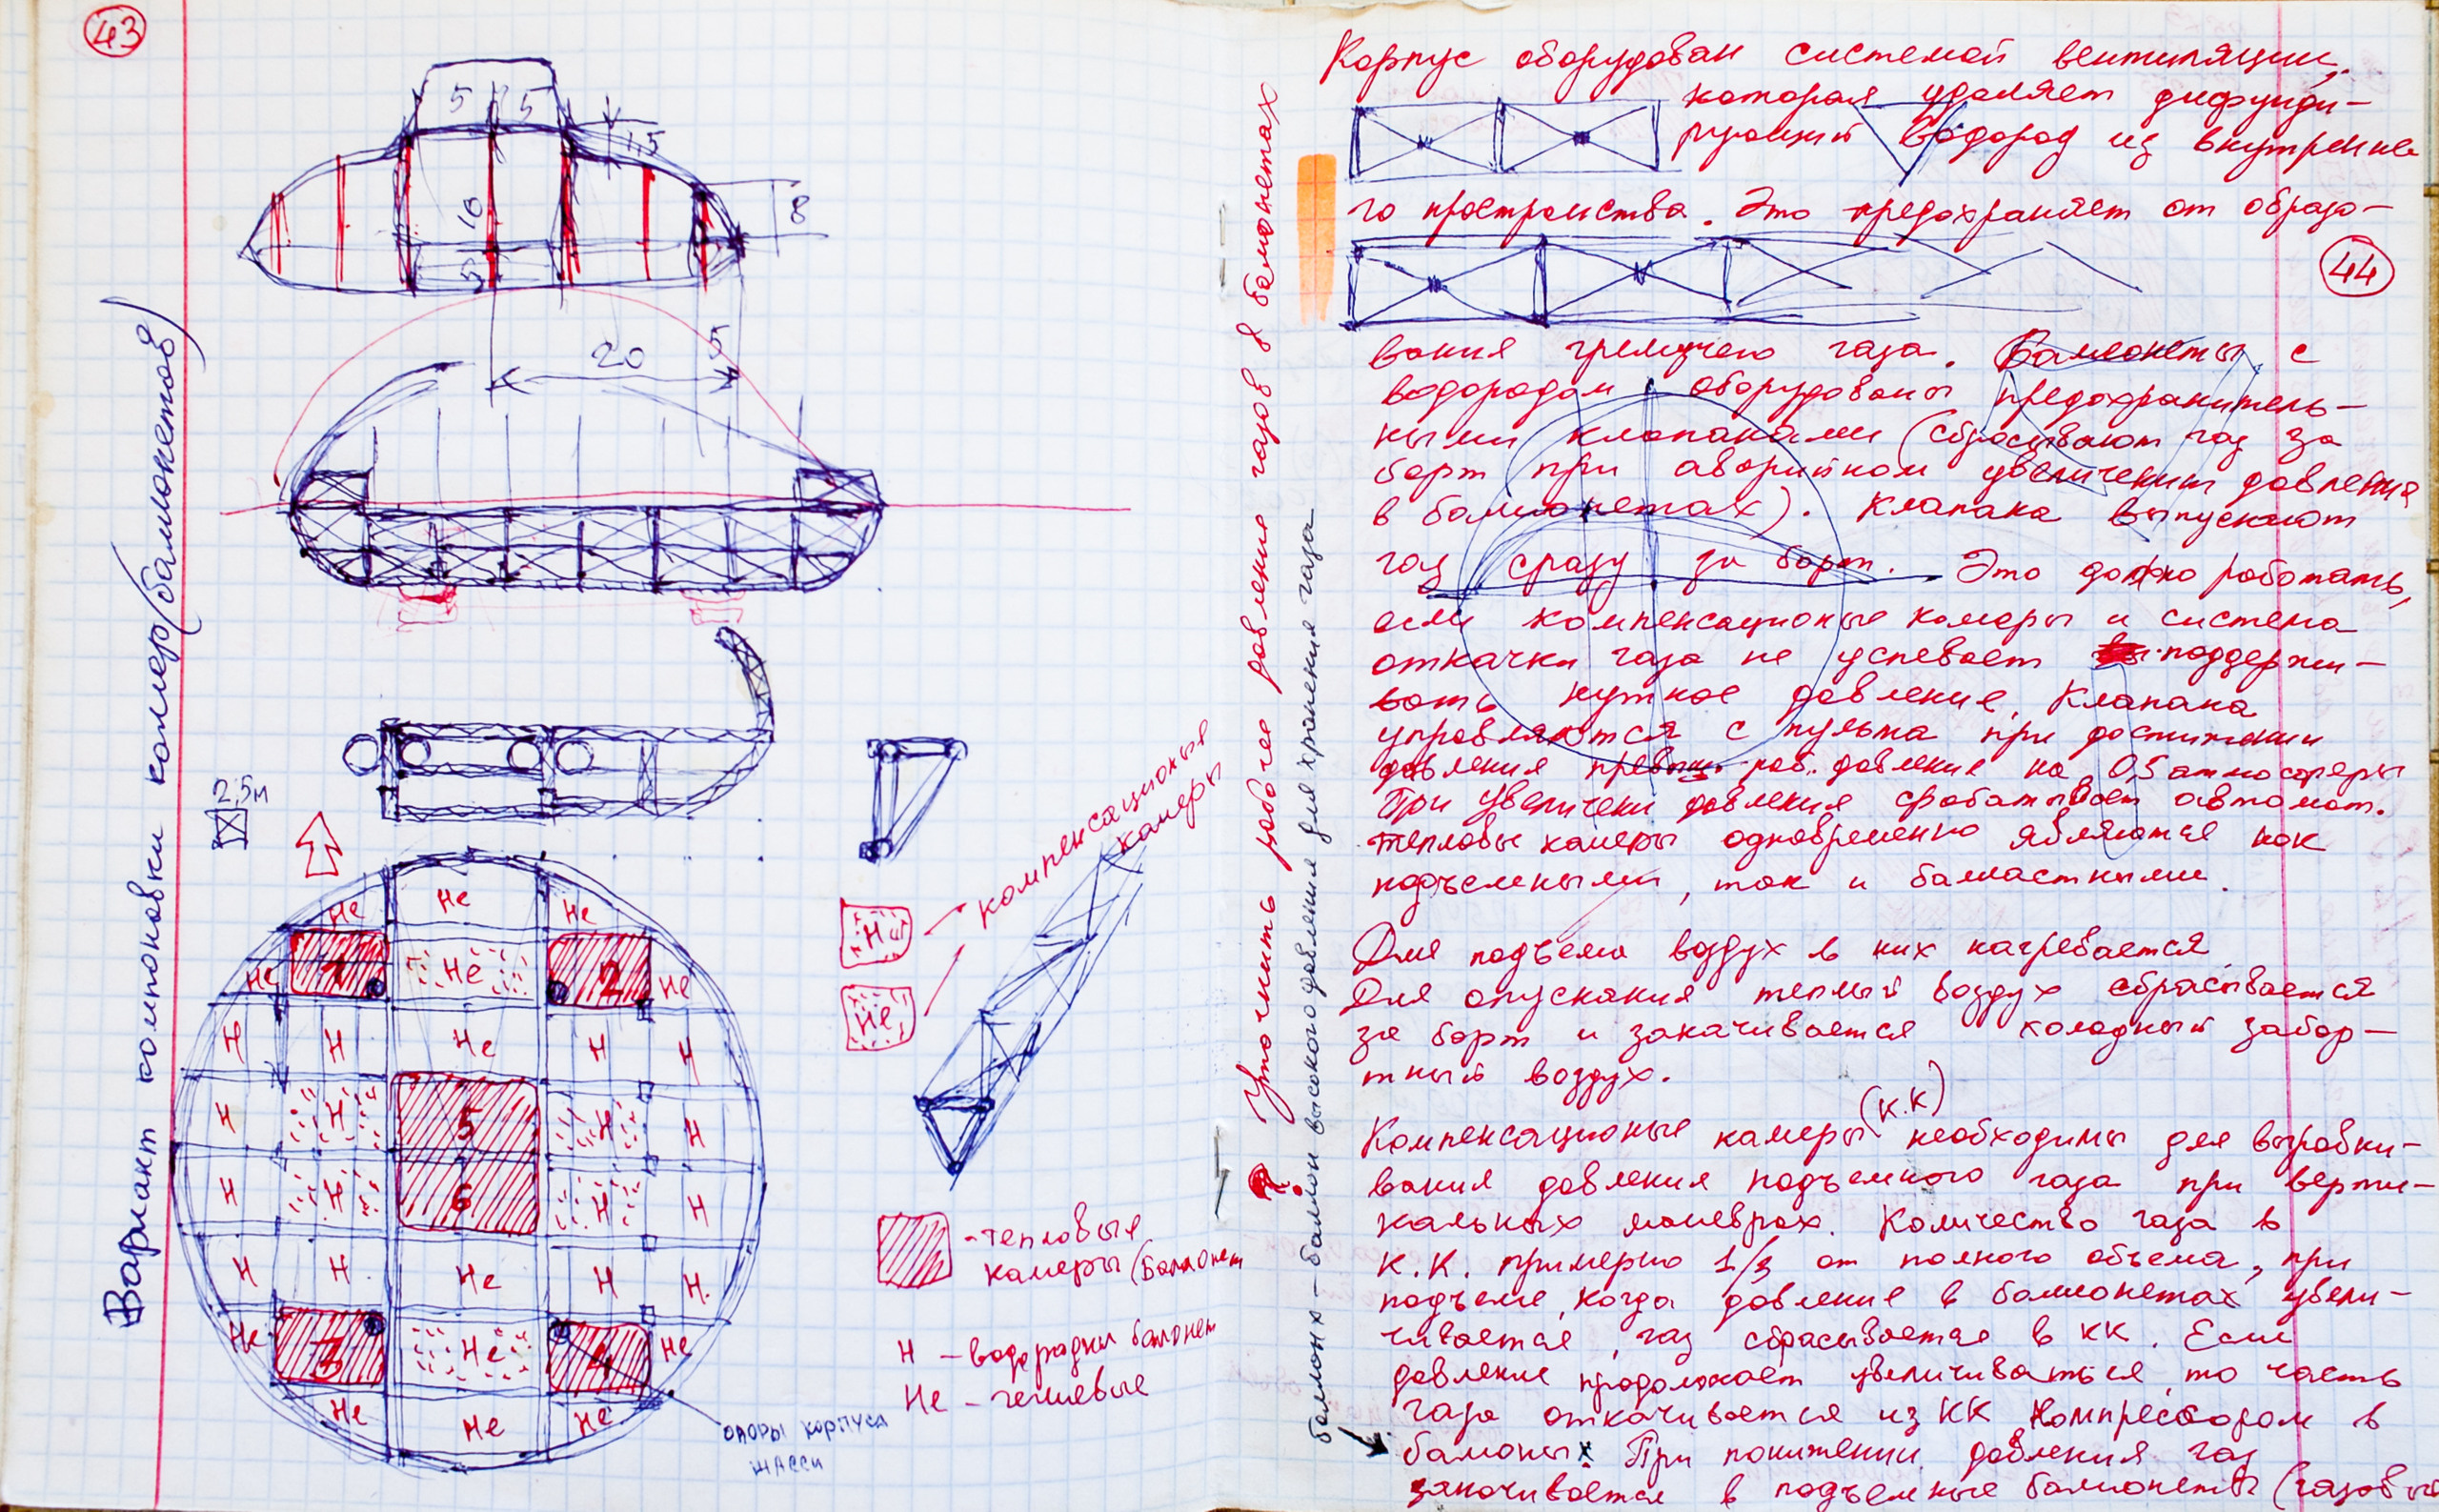 43
Вариант компоновки камер (баллонетов)
5 5
1,5
10
8
5
20
5
2,5м
Не
Не Не
1 Не 2
Не Не
Н Н Не Н Н
Н Н 5 Н Н
Н Н 6 Н Н
Н Н Не Н Н
Не 3 Не 4 Не
Не Не Не
Н
Не
компенсационые
камеры
- тепловые
камеры (Баллонет
Н – водородны балонет
Не – гелиевые
опоры корпуса
шасси
Уточнить рабочее давление газов в балонетах
баллоны х – баллон высокого давления для хранения газа
Корпус оборудован системой вентиляции,
которая удаляет дифунди-
рующий водород из внутренне
го пространства. Это предохраняет от образо-
44
вания гремучего газа. Баллонеты с
водородом оборудованы предохранитель-
ными клапанами (сбрасывают газ за
борт при аварийном увеличении давления
в баллонетах). Клапана выпускают
газ сразу за борт. Это должно работать,
если компенсационые камеры и система
откачки газа не успевает поддержи-
вать нужное давление. Клапана
управляются с пульта при достижении
давления превыш. раб. давление на 0,5 атмосферы
При увеличени давления срабатывает автомат.
тепловые камеры одновременно являются как
подъемными, так и балластными.
Для подъема воздух в них нагревается
Для опускания теплый воздух сбрасывается
за борт и закачивается холодный забор-
тный воздух.
(К.К)
Компенсационые камеры необходимы для выравни-
вания давления подъемного газа при верти-
кальных маневрах. Количество газа в
К.К. примерно 1/3 от полного объема, при
подъеме, когда давление в баллонетах увели-
чивается, газ сбрасывается в КК. Если
давление продолжает увеличиваться, то часть
газа откачивается из КК компрессором в
баллоны х При понижении давления газ
закачивается в подъемные баллонеты (газовые